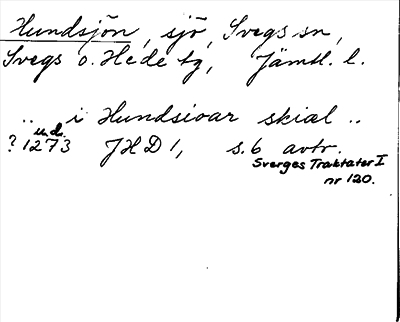 Hundsjön, sjö, Svegs sn,
Svegs o. Hede tg, Jämtl. l.
.. i Hundsioar skial ..
u.d.
? 1273 JHD 1, s. 6 avtr.
Sverges Traktater I
nr 120.